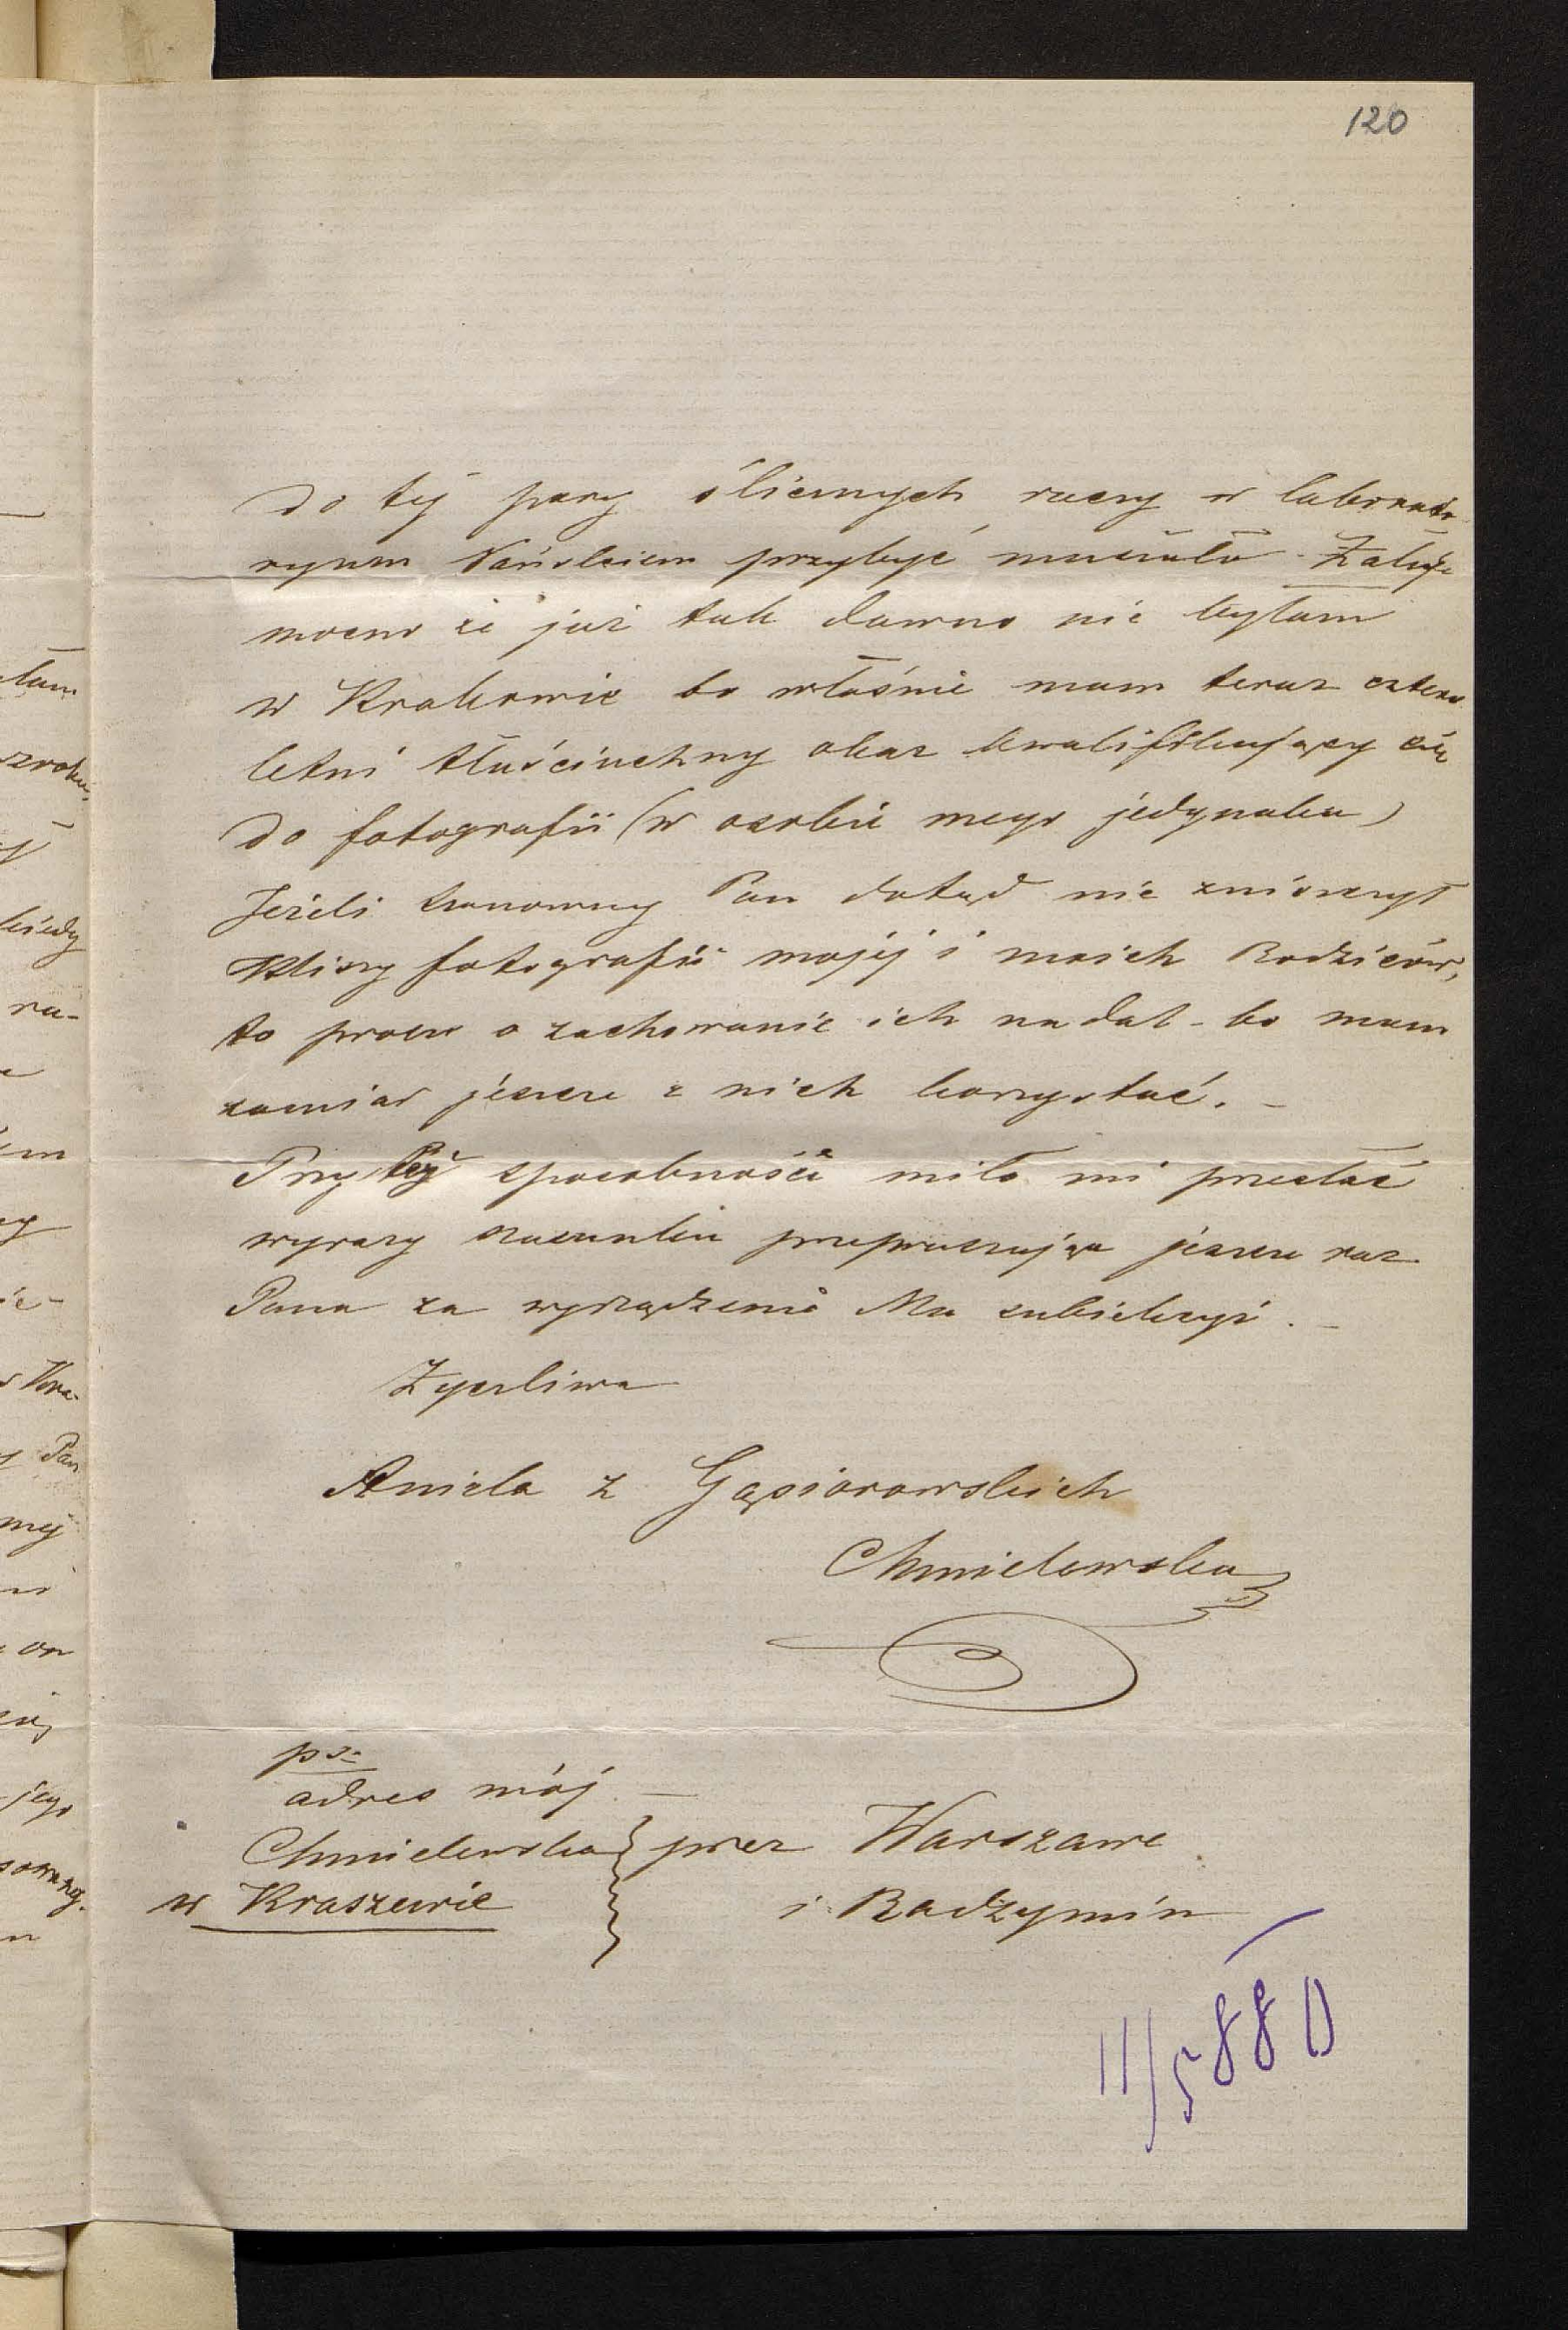 120
do tej pary ślicznych rzeczy w laborato
ryum Pańskiem przybyć musiało - Żałuję
mocno że już tak dawno nie byłam
w Krakowie bo właśnie mam teraz cztero
letni tłuściuchny okaz kwalifikujący się
do fotografii (w osobie mego jedynaka)
Jeżeli szanowny Pan dotąd nie zniszczył
kliszy fotografii mojej i moich Rodziców,
to proszę o zachowanie ich nadal - bo mam
zamiar jeszcze z nich korzystać. -
Przy tej sposobności miło mi przesłać
wyrazy szacunku przepraszając jeszcze raz
Pana za wyrządzenie Mu subiekcyi. -
Życzliwa
Aniela z Gąsiorowskich
Chmielewska
ps:
adres mój. -
Chmielewska przez Warszawę
w Kraszewie i Radzymin
11/5 880
łam
zroku,
kiedy
ra-
em
ie-
w Kra-
Pan
mej
on
jego
n